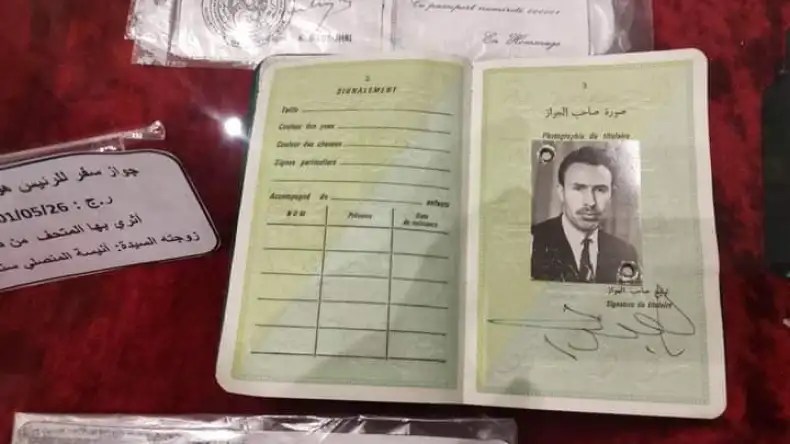 Ce passeport numéroté 000001
En Hommage
2
SIGNALEMENT
Taille
Couleur des yeux
Couleur des cheveux
Signes particuliers
Accompagné de enfants
NOM Prénoms Date de naissance
3
صورة صاحب الجواز
Photographie du titulaire
توقيع صاحب الجواز
Signature du titulaire
جواز سفر للرئيس هو
ر.ج : 01/05/26
أثري بها المتحف من ط
زوجته السيدة: أنيسة المنصلي سنة